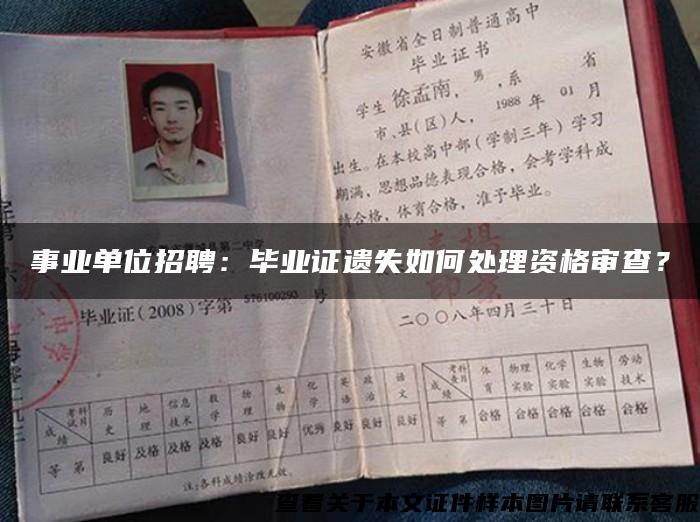 安徽省全日制普通高中
毕业证书
学生徐孟南，男，系 省
市、县(区)人，1988年01月
出生。在本校高中部(学制三年)学习
期满，思想品德表现合格，会考学科成
绩合格，体育合格，准予毕业。
事业单位招聘：毕业证遗失如何处理资格审查？
毕业证(2008)字第576100293号
二〇〇八年四月三十日
考试科目 历史 地理 信息技术 数学 物理 生物 化学 英语 政治 语文
成绩
等第 良好 及格 及格 及格 良好 良好 优秀 良好 良好 良好
注：各科成绩涂改无效。
考查科目 体育 物理实验 化学实验 生物实验 劳动技术
成绩
等第 合格 合格 合格 合格 合格
查看关于本文证件样本图片请联系客服